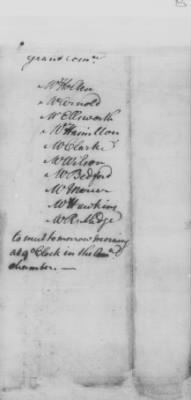 grant Comee
Mr Holten
Mr Arnold
Mr Ellsworth
Mr Hamilton
Mr Clarke
Mr Wilson
Mr Bedford
Mr Mercer
Mr Hawkins
Mr Rutledge
to meet tomorrow morning
at 9 oClock in the Comee
chamber. —